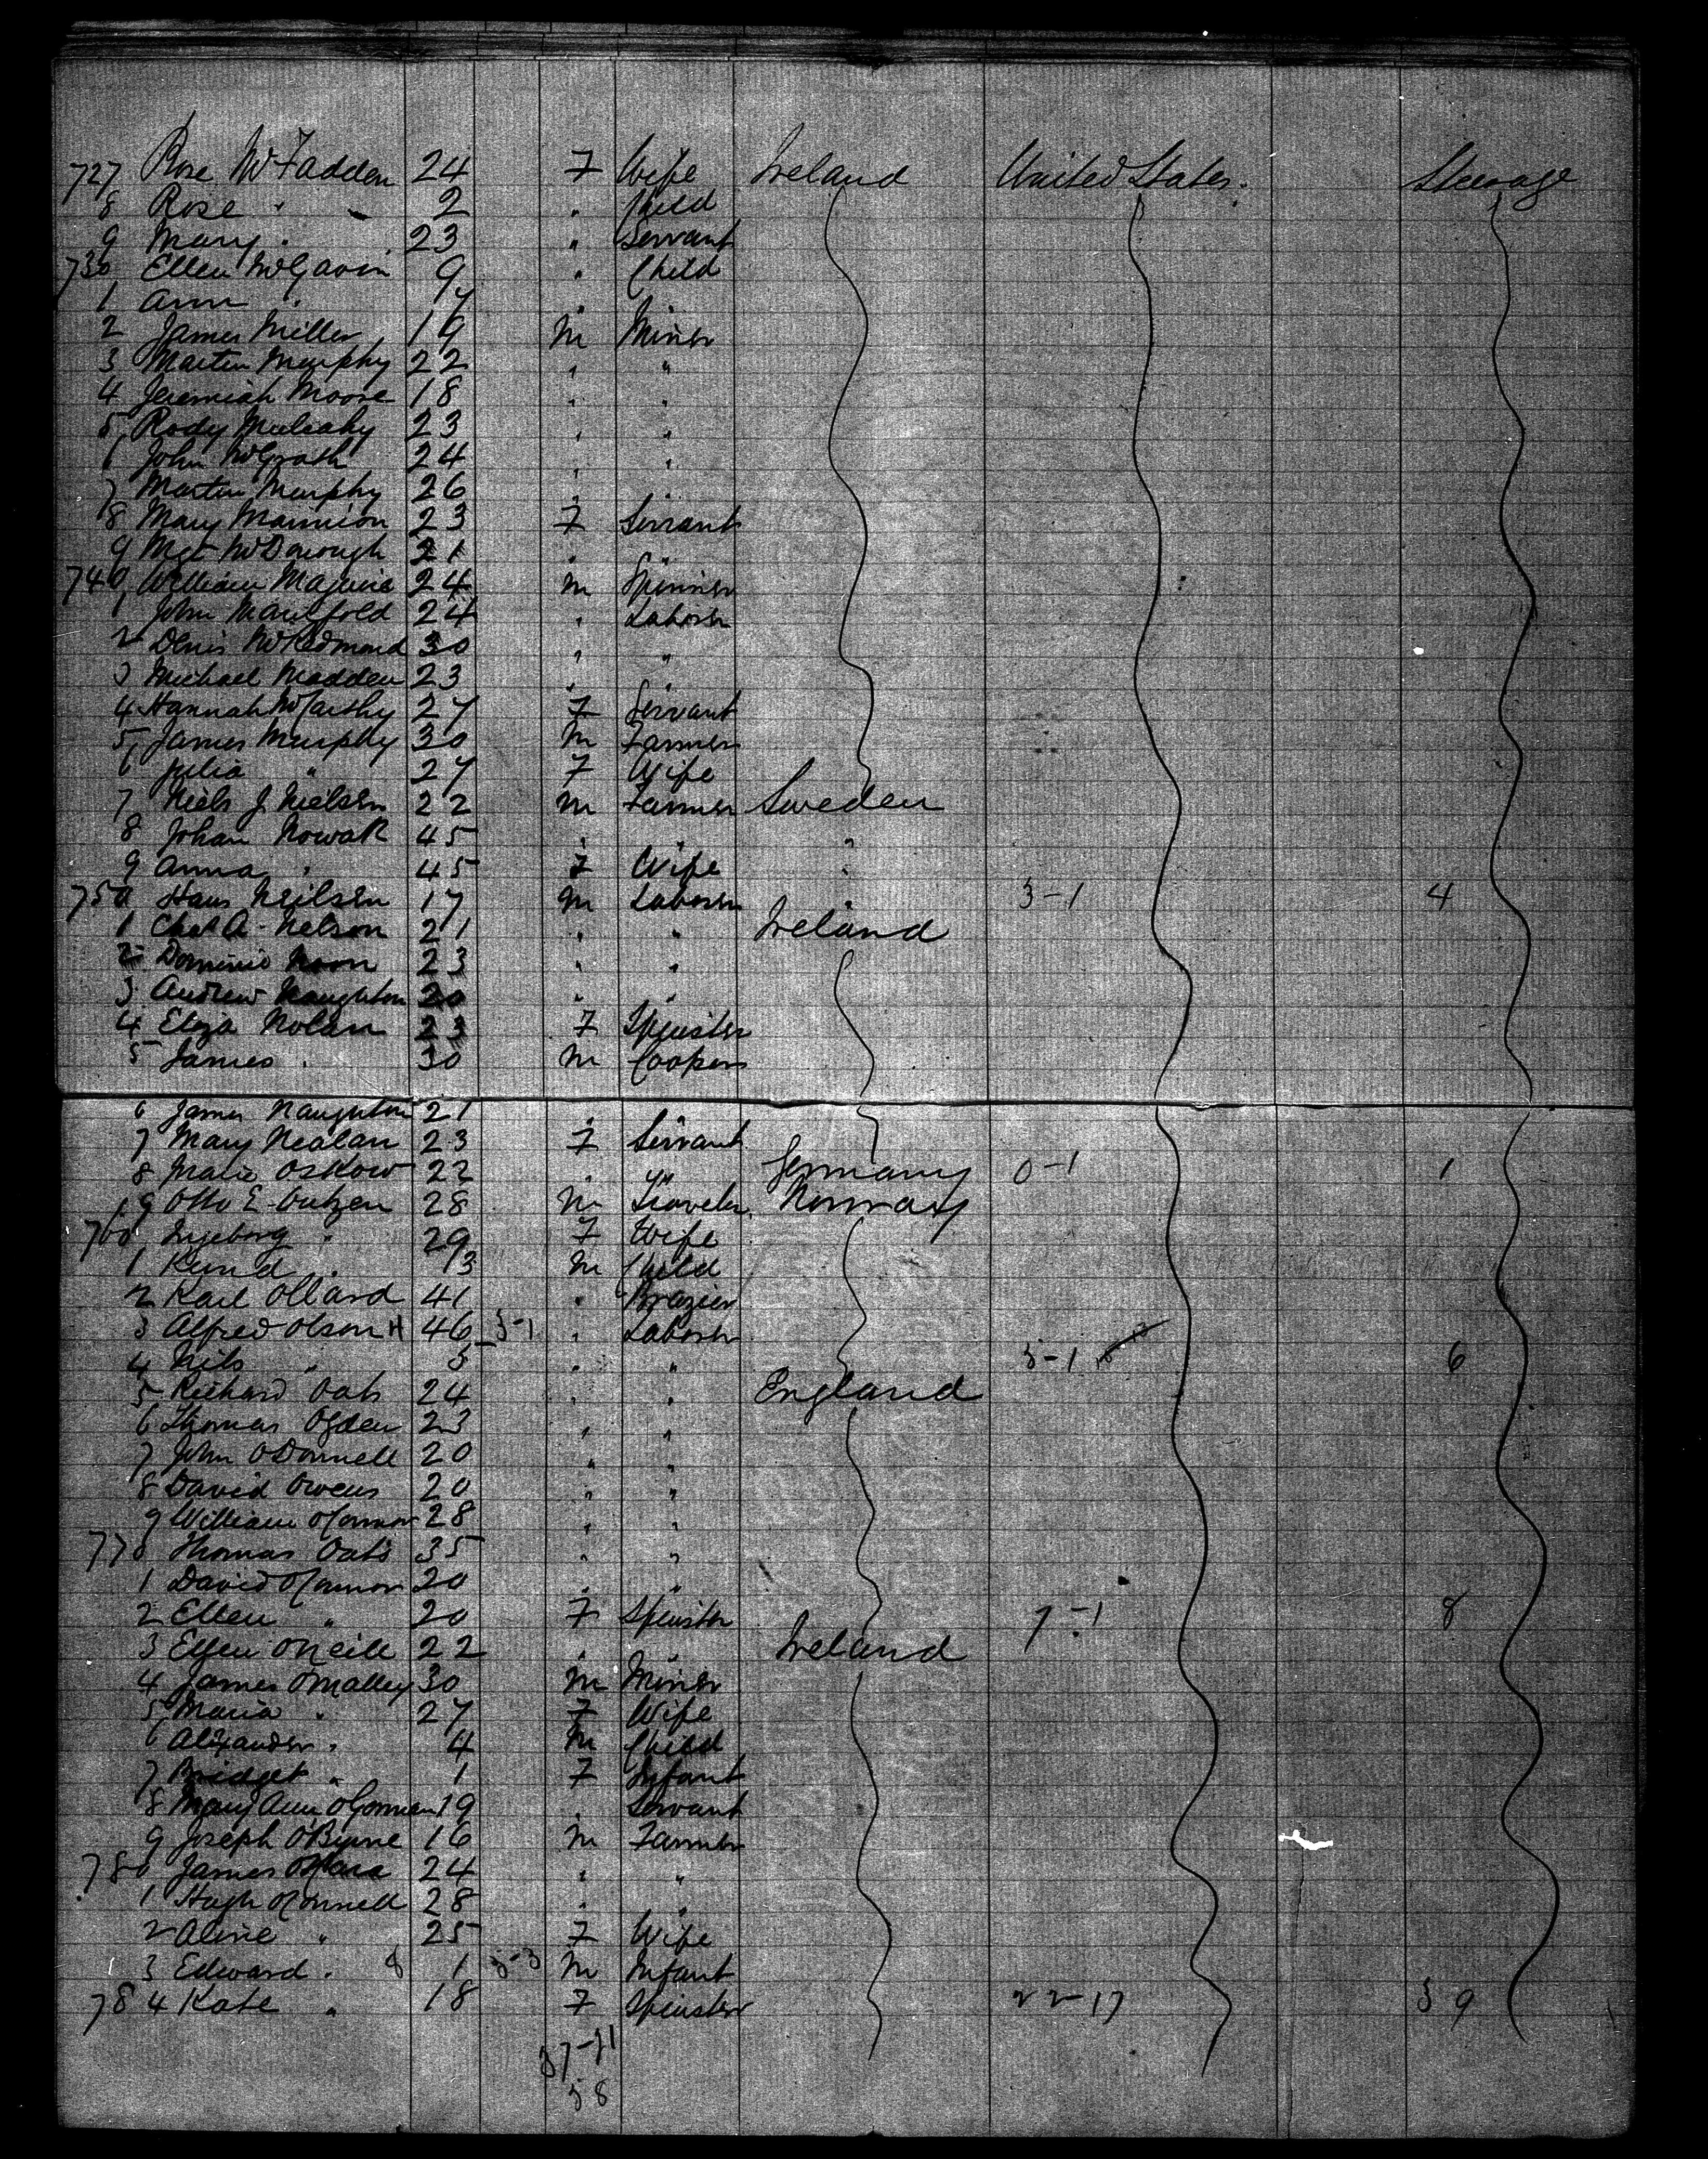 727 Rose McFadden 24 F Wife Ireland United States. Steerage
8 Rose " 2 " Child
9 Mary " 23 " Servant
730 Ellen McGavin 9 " Child
1 Ann " "
2 James Miller 19 M Miner
3 Martin Murphy 22 " "
4 Jeremiah Moore 18 " "
5 Rody Mulcahy 23 " "
6 John McGrath 24 " "
7 Martin Murphy 26 "
8 Mary Mannion 23 F Servant
9 Mgt McDonough 21 "
740 William Maguire 24 M Spinner
1 John Manifold 24 " Laborer
2 Denis McRedmond 30 " "
3 Michael Madden 23 " "
4 Hannah McCarthy 27 F Servant
5 James Murphy 30 M Farmer
6 Julia " 27 F Wife
7 Niels J. Nielsen 22 M Farmer Sweden
8 Johan Nowak 45 " " "
9 Anna " 45 F Wife "
750 Hans Neilsen 17 M Laborer " 3-1 4
1 Chas A. Nelson 21 " " Ireland
2 Dominic Noon 23 " "
3 Andrew Naughton 20 " "
4 Eliza Nolan 23 F Spinster
5 James " 30 M Cooper
6 James Naughton 21 "
7 Mary Nealan 23 F Servant
8 Maria Oskow 22 " " Germany 0-1 1
9 Otto E. Outzen 28 M Traveler Norway
760 Ingeborg " 29 F Wife
1 Kund " 3 M Child
2 Karl Ollard 41 " Brazier
3 Alfred Olson H 46 3-1 " Laborer
4 Nils " 5 " " 5-1 6
5 Richard Oats 24 " " England
6 Thomas Ogden 23 " "
7 John O'Donnell 20 " "
8 David Owens 20 " "
9 William O'Connor 28 " "
770 Thomas Oats 35 " "
1 David O'Connor 20 " "
2 Ellen " 20 F Spinster 7-1 8
3 Ellen O'Neill 22 " " Ireland
4 James O'Malley 30 M Miner
5 Maria " 27 F Wife
6 Alexander " 4 M Child
7 Bridget " 1 F Infant
8 Mary Ann O'Gorman 19 " Servant
9 Joseph O'Byrne 16 M Farmer
780 James O'Hara 24 " "
1 Hugh O'Connell 28 " "
2 Aline " 25 F Wife
3 Edward " 8 1 M Infant
784 Kate " 18 F Spinster 22-17 39
37-21
58